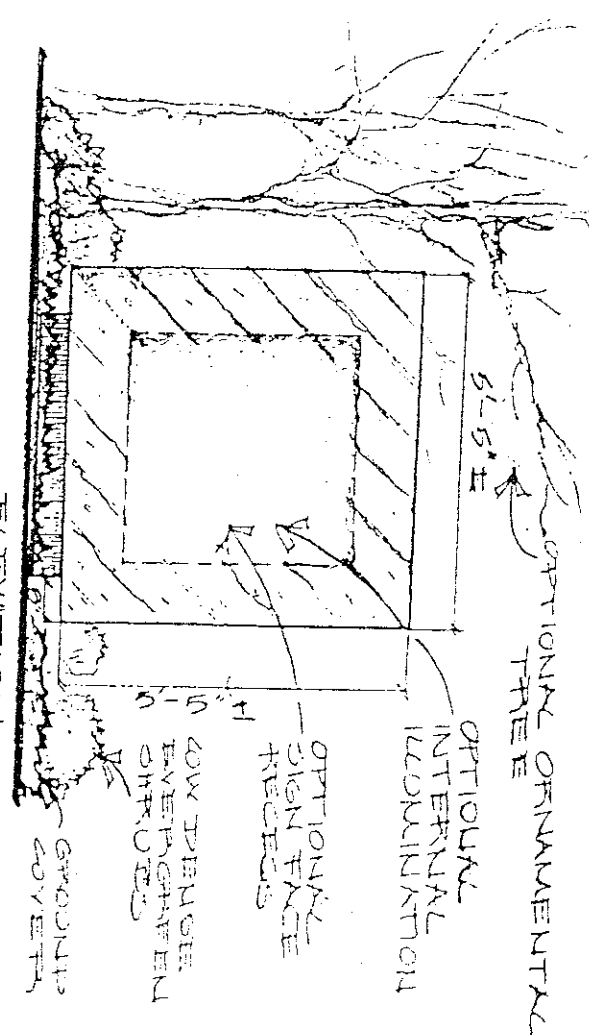 OPTIONAL ORNAMENTAL
TREE
5'-5" ±
OPTIONAL
INTERNAL
ILLUMINATION
OPTIONAL
SIGN FACE
RECESS
5'-5" ±
LOW DENSE
EVERGREEN
SHRUBS
GROUND
COVER